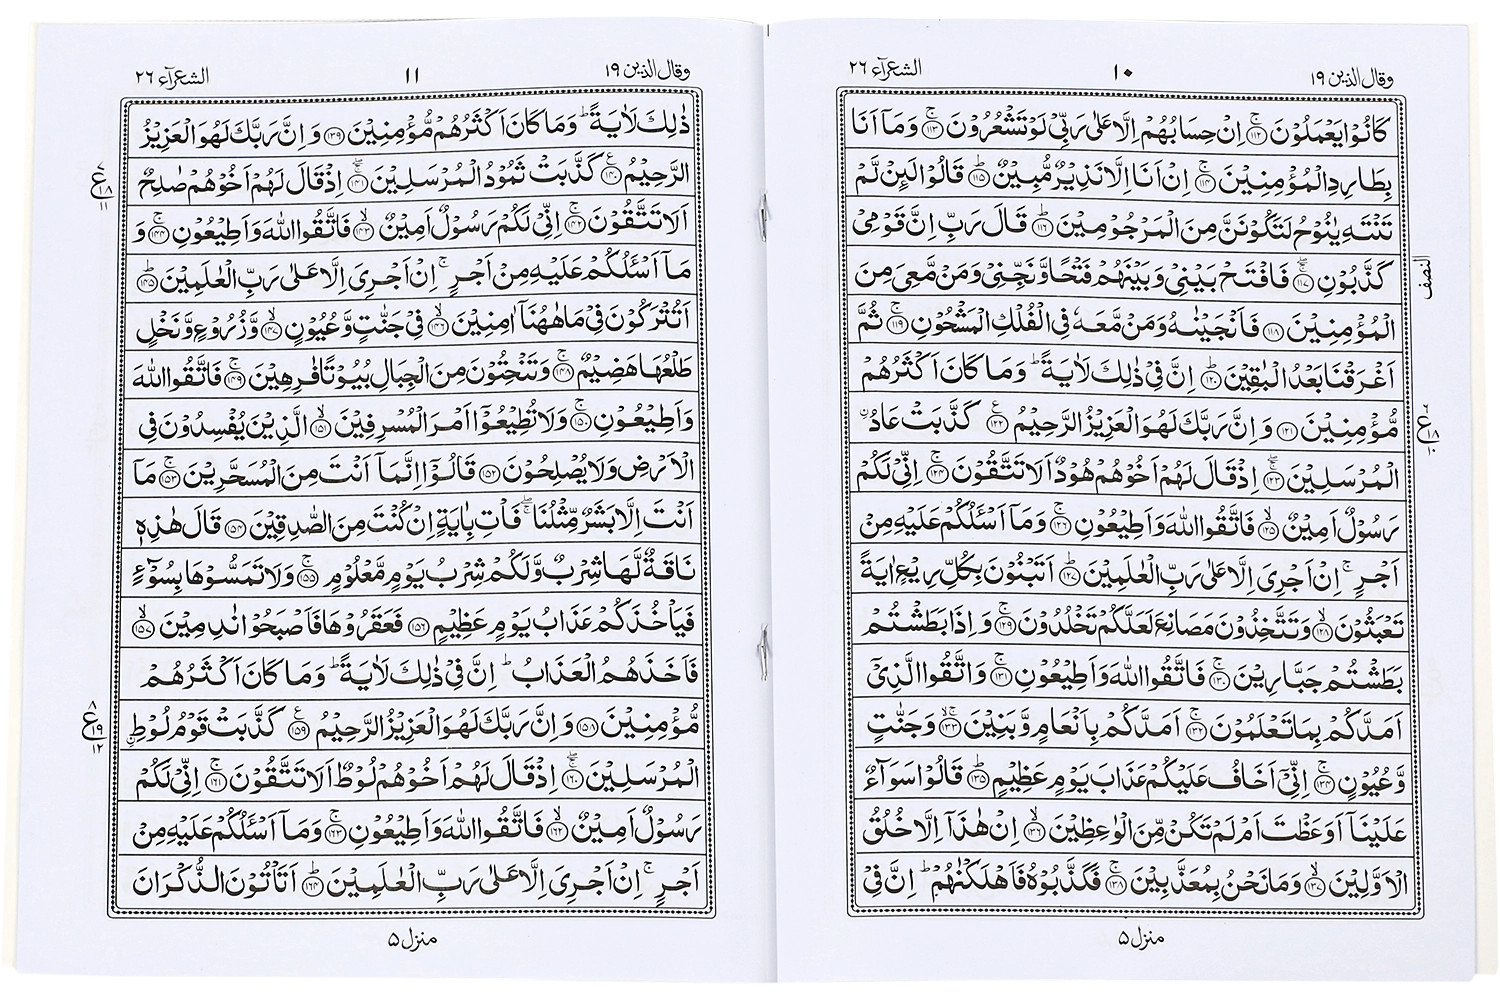 وقال الذين ١٩
١٠
الشعرآء ٢٦
كَانُوْا يَعْمَلُوْنَ ۚ﴿١١٢﴾ اِنْ حِسَابُهُمْ اِلَّا عَلٰى رَبِّىْ لَوْ تَشْعُرُوْنَ ۚ﴿١١٣﴾ وَمَاۤ اَنَا
بِطَارِدِ الْمُؤْمِنِيْنَ ۚ﴿١١٤﴾ اِنْ اَنَا اِلَّا نَذِيْرٌ مُّبِيْنٌ ؕ﴿١١٥﴾ قَالُوْا لَئِنْ لَّمْ
تَنْتَهِ يٰنُوْحُ لَتَكُوْنَنَّ مِنَ الْمَرْجُوْمِيْنَ ؕ﴿١١٦﴾ قَالَ رَبِّ اِنَّ قَوْمِىْ
كَذَّبُوْنِ ۚۖ﴿١١٧﴾ فَافْتَحْ بَيْنِىْ وَبَيْنَهُمْ فَتْحًا وَّنَجِّنِىْ وَمَنْ مَّعِىَ مِنَ
النصف
الْمُؤْمِنِيْنَ ﴿١١٨﴾ فَاَنْجَيْنٰهُ وَمَنْ مَّعَهٗ فِى الْفُلْكِ الْمَشْحُوْنِ ۚ﴿١١٩﴾ ثُمَّ
اَغْرَقْنَا بَعْدُ الْبٰقِيْنَ ؕ﴿١٢٠﴾ اِنَّ فِىْ ذٰلِكَ لَاٰيَةً ؕ وَمَا كَانَ اَكْثَرُهُمْ
مُّؤْمِنِيْنَ ﴿١٢١﴾ وَاِنَّ رَبَّكَ لَهُوَ الْعَزِيْزُ الرَّحِيْمُ ۧ﴿١٢٢﴾ كَذَّبَتْ عَادُ ۨ
٦
ع
١٨
١٠
الْمُرْسَلِيْنَ ۚۖ﴿١٢٣﴾ اِذْ قَالَ لَهُمْ اَخُوْهُمْ هُوْدٌ اَلَا تَتَّقُوْنَ ۚ﴿١٢٤﴾ اِنِّىْ لَكُمْ
رَسُوْلٌ اَمِيْنٌ ۙ﴿١٢٥﴾ فَاتَّقُوا اللّٰهَ وَاَطِيْعُوْنِ ۚ﴿١٢٦﴾ وَمَاۤ اَسْئَلُكُمْ عَلَيْهِ مِنْ
اَجْرٍ ۚ اِنْ اَجْرِىَ اِلَّا عَلٰى رَبِّ الْعٰلَمِيْنَ ؕ﴿١٢٧﴾ اَتَبْنُوْنَ بِكُلِّ رِيْعٍ اٰيَةً
تَعْبَثُوْنَ ۙ﴿١٢٨﴾ وَتَتَّخِذُوْنَ مَصَانِعَ لَعَلَّكُمْ تَخْلُدُوْنَ ۚ﴿١٢٩﴾ وَاِذَا بَطَشْتُمْ
بَطَشْتُمْ جَبَّارِيْنَ ۚ﴿١٣٠﴾ فَاتَّقُوا اللّٰهَ وَاَطِيْعُوْنِ ۚ﴿١٣١﴾ وَاتَّقُوا الَّذِىْۤ
اَمَدَّكُمْ بِمَا تَعْلَمُوْنَ ۚ﴿١٣٢﴾ اَمَدَّكُمْ بِاَنْعَامٍ وَّبَنِيْنَ ۚۙ﴿١٣٣﴾ وَجَنّٰتٍ
وَّعُيُوْنٍ ۚ﴿١٣٤﴾ اِنِّىْۤ اَخَافُ عَلَيْكُمْ عَذَابَ يَوْمٍ عَظِيْمٍ ؕ﴿١٣٥﴾ قَالُوْا سَوَآءٌ
عَلَيْنَاۤ اَوَعَظْتَ اَمْ لَمْ تَكُنْ مِّنَ الْوٰعِظِيْنَ ۙ﴿١٣٦﴾ اِنْ هٰذَاۤ اِلَّا خُلُقُ
الْاَوَّلِيْنَ ۙ﴿١٣٧﴾ وَمَا نَحْنُ بِمُعَذَّبِيْنَ ۚ﴿١٣٨﴾ فَكَذَّبُوْهُ فَاَهْلَكْنٰهُمْ ؕ اِنَّ فِىْ
منزل ٥
وقال الذين ١٩
١١
الشعرآء ٢٦
ذٰلِكَ لَاٰيَةً ؕ وَمَا كَانَ اَكْثَرُهُمْ مُّؤْمِنِيْنَ ﴿١٣٩﴾ وَاِنَّ رَبَّكَ لَهُوَ الْعَزِيْزُ
الرَّحِيْمُ ۧ﴿١٤٠﴾ كَذَّبَتْ ثَمُوْدُ الْمُرْسَلِيْنَ ۚۖ﴿١٤١﴾ اِذْ قَالَ لَهُمْ اَخُوْهُمْ صٰلِحٌ
٧
ع
١٨
١١
اَلَا تَتَّقُوْنَ ۚ﴿١٤٢﴾ اِنِّىْ لَكُمْ رَسُوْلٌ اَمِيْنٌ ۙ﴿١٤٣﴾ فَاتَّقُوا اللّٰهَ وَاَطِيْعُوْنِ ۚ﴿١٤٤﴾ وَ
مَاۤ اَسْئَلُكُمْ عَلَيْهِ مِنْ اَجْرٍ ۚ اِنْ اَجْرِىَ اِلَّا عَلٰى رَبِّ الْعٰلَمِيْنَ ؕ﴿١٤٥﴾
اَتُتْرَكُوْنَ فِىْ مَا هٰهُنَاۤ اٰمِنِيْنَ ۙ﴿١٤٦﴾ فِىْ جَنّٰتٍ وَّعُيُوْنٍ ۙ﴿١٤٧﴾ وَّزُرُوْعٍ وَّنَخْلٍ
طَلْعُهَا هَضِيْمٌ ۚ﴿١٤٨﴾ وَتَنْحِتُوْنَ مِنَ الْجِبَالِ بُيُوْتًا فٰرِهِيْنَ ۚ﴿١٤٩﴾ فَاتَّقُوا اللّٰهَ
وَاَطِيْعُوْنِ ۚ﴿١٥٠﴾ وَلَا تُطِيْعُوْۤا اَمْرَ الْمُسْرِفِيْنَ ۙ﴿١٥١﴾ الَّذِيْنَ يُفْسِدُوْنَ فِى
الْاَرْضِ وَلَا يُصْلِحُوْنَ ﴿١٥٢﴾ قَالُوْۤا اِنَّمَاۤ اَنْتَ مِنَ الْمُسَحَّرِيْنَ ۚ﴿١٥٣﴾ مَاۤ
اَنْتَ اِلَّا بَشَرٌ مِّثْلُنَا ۚۖ فَاْتِ بِاٰيَةٍ اِنْ كُنْتَ مِنَ الصّٰدِقِيْنَ ﴿١٥٤﴾ قَالَ هٰذِهٖ
نَاقَةٌ لَّهَا شِرْبٌ وَّلَكُمْ شِرْبُ يَوْمٍ مَّعْلُوْمٍ ۚ﴿١٥٥﴾ وَلَا تَمَسُّوْهَا بِسُوْٓءٍ
فَيَاْخُذَكُمْ عَذَابُ يَوْمٍ عَظِيْمٍ ﴿١٥٦﴾ فَعَقَرُوْهَا فَاَصْبَحُوْا نٰدِمِيْنَ ۙ﴿١٥٧﴾
فَاَخَذَهُمُ الْعَذَابُ ؕ اِنَّ فِىْ ذٰلِكَ لَاٰيَةً ؕ وَمَا كَانَ اَكْثَرُهُمْ
مُّؤْمِنِيْنَ ﴿١٥٨﴾ وَاِنَّ رَبَّكَ لَهُوَ الْعَزِيْزُ الرَّحِيْمُ ۧ﴿١٥٩﴾ كَذَّبَتْ قَوْمُ لُوْطِ ۨ
٨
ع
١٩
١٢
الْمُرْسَلِيْنَ ۚۖ﴿١٦٠﴾ اِذْ قَالَ لَهُمْ اَخُوْهُمْ لُوْطٌ اَلَا تَتَّقُوْنَ ۚ﴿١٦١﴾ اِنِّىْ لَكُمْ
رَسُوْلٌ اَمِيْنٌ ۙ﴿١٦٢﴾ فَاتَّقُوا اللّٰهَ وَاَطِيْعُوْنِ ۚ﴿١٦٣﴾ وَمَاۤ اَسْئَلُكُمْ عَلَيْهِ مِنْ
اَجْرٍ ۚ اِنْ اَجْرِىَ اِلَّا عَلٰى رَبِّ الْعٰلَمِيْنَ ؕ﴿١٦٤﴾ اَتَاْتُوْنَ الذُّكْرَانَ
منزل ٥